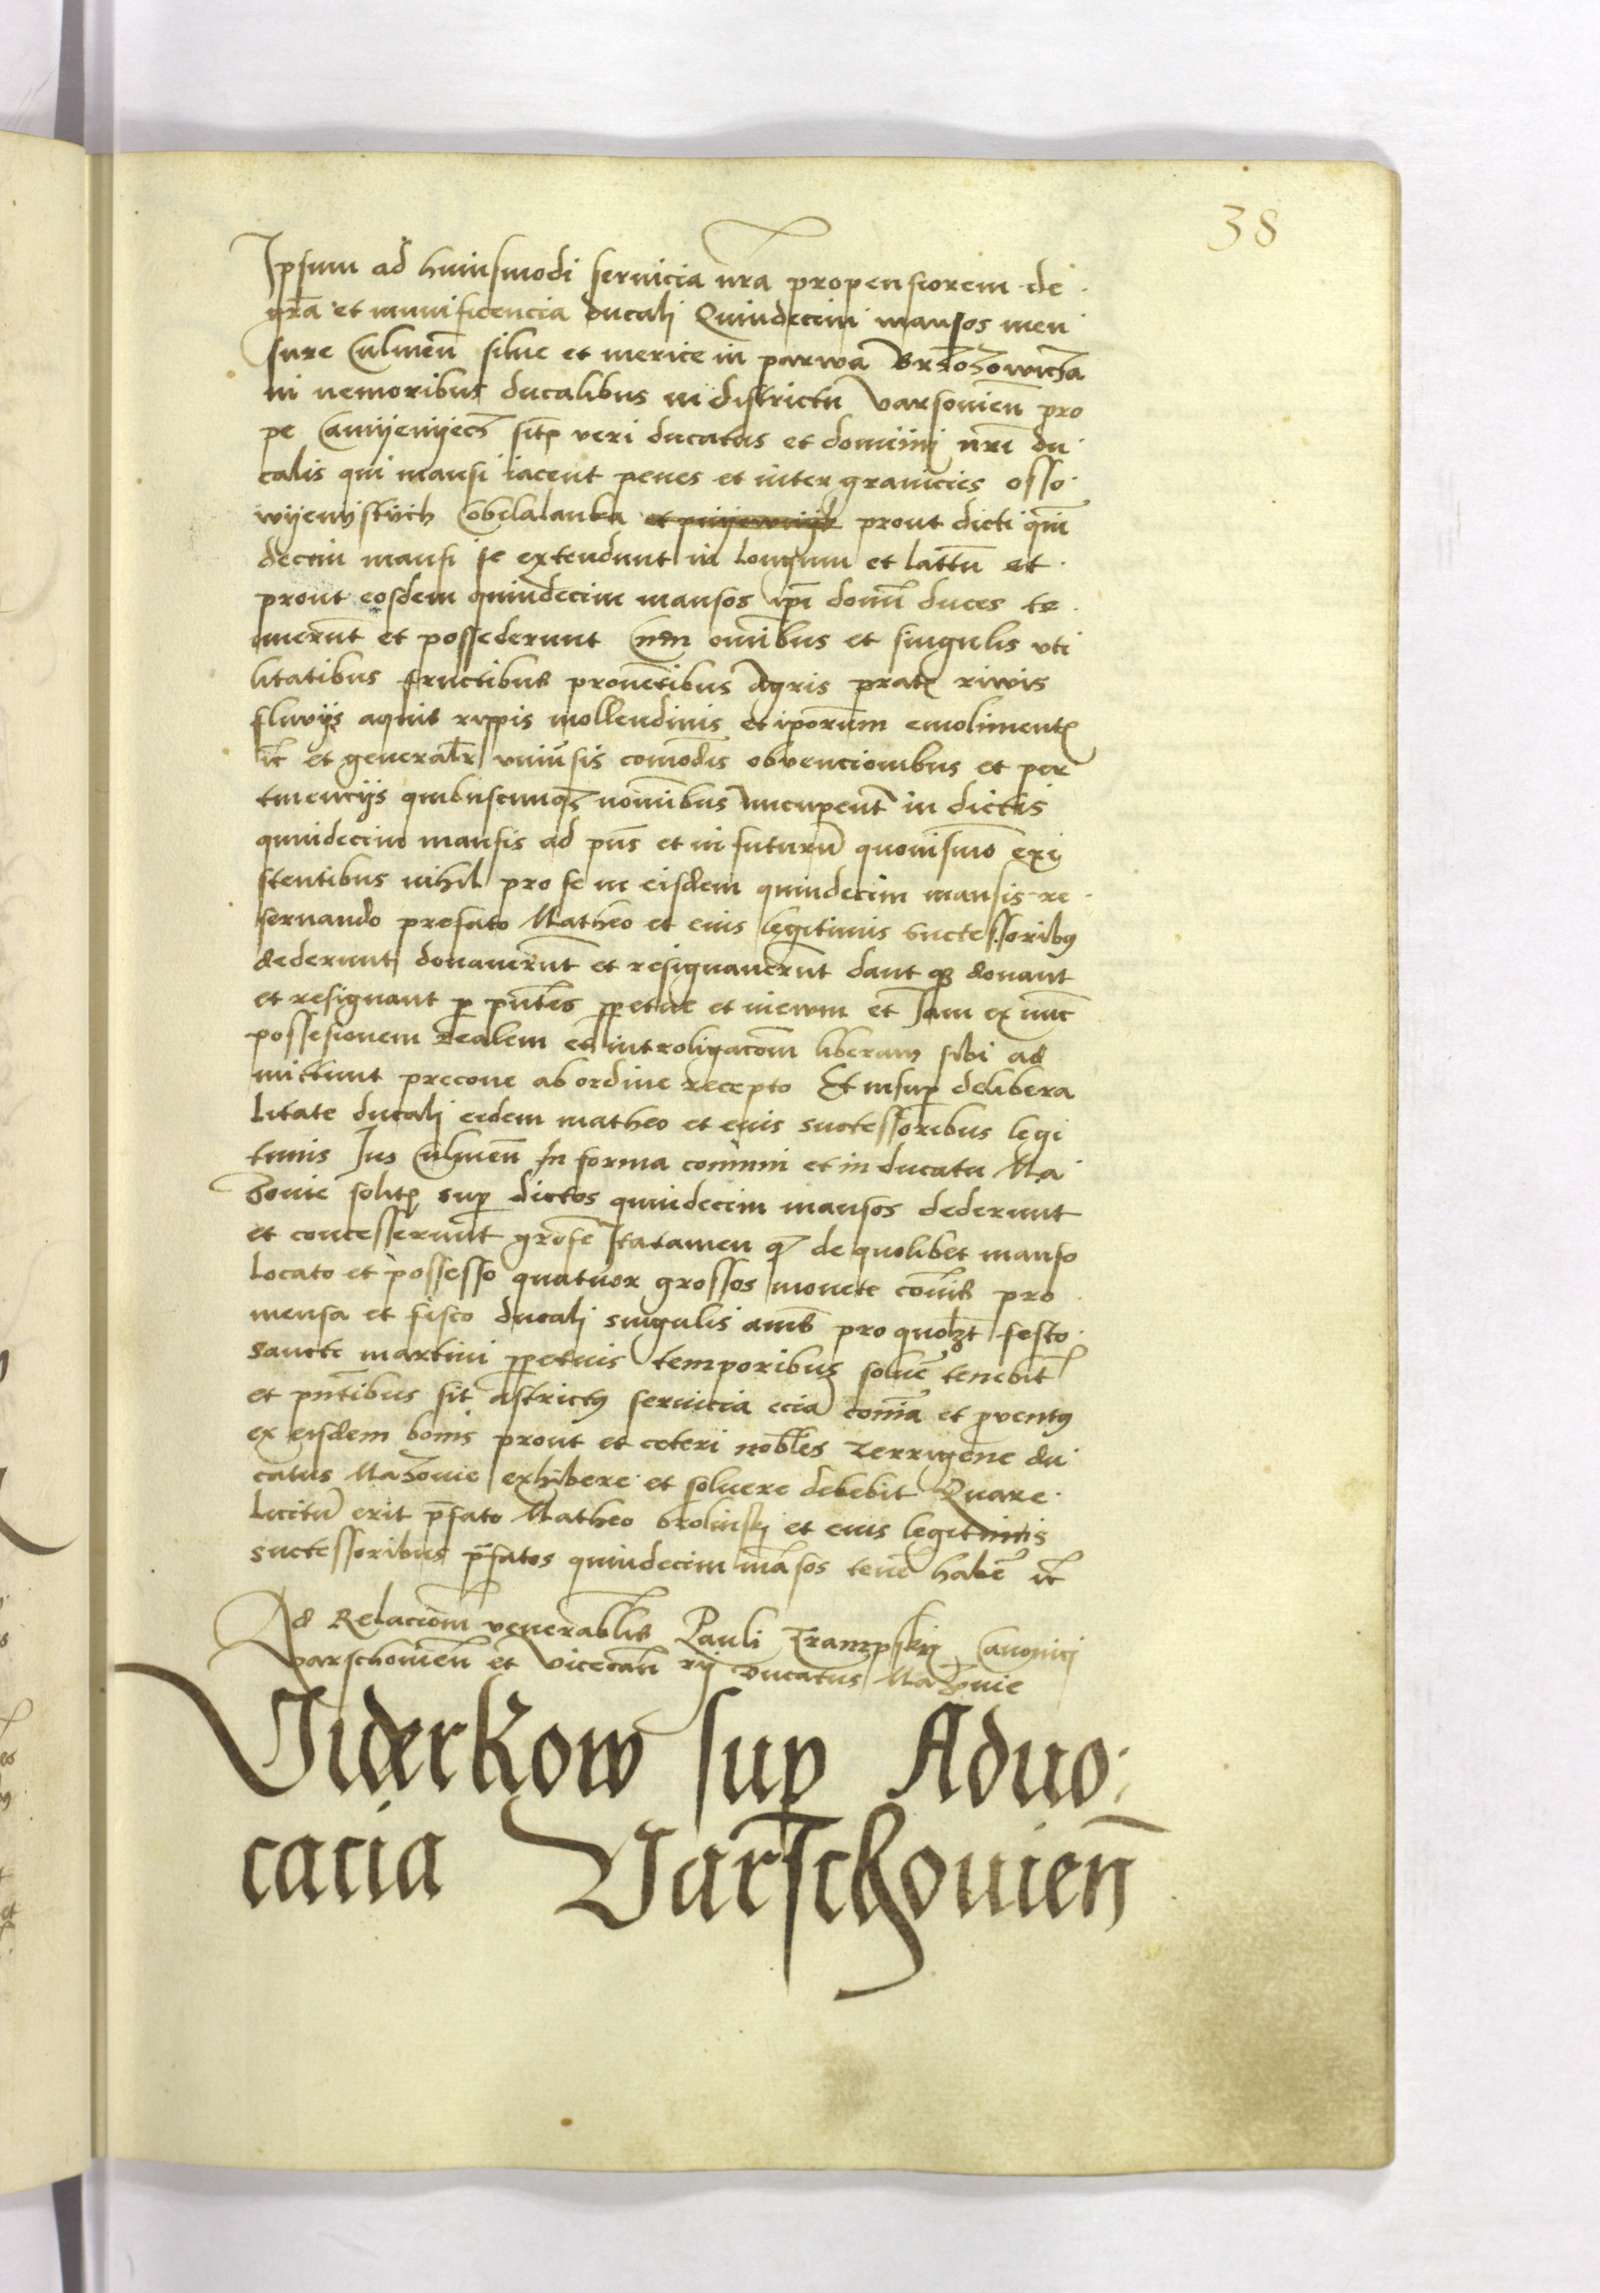 38
Ipsum ad huiusmodi servicia nrã propensiorem de
grã et munificencia ducali Quindecim mansos men
sure Culmeñ silue et merice in parwa Brzozowicza
in nemoribus ducalibus in districtu Varsonieñ pro
pe Camyenyecz sitꝭ veri ducatus et dominij nrĩ du
calis qui mansi iacent penes et inter granicies osso
wyenystych Cobelalanka prout dicti quin
decim mansi se extendunt in longum et lattũ et
prout eosdem quindecim mansos ipĩ domĩ duces te
nuerũt et possederunt Cum omĩbus et singulis vti
litatibus fructibus prouẽtibus Agris pratꝭ riwis
fluvijs aquis rippis mollendinis et ipõrum emolimentꝭ
ic̃ et generalr̃ vniũsis comodis obvencionibus et per
tinencijs quibuscunqꝫ nomĩbus nuncupent̃ in dictis
quindecim mansis ad pñs et in futurũ quouismõ exi
stentibus nihil pro se in eisdem quindecim mansis re
servando prefato Matheo et eius legitimis successoribꝰ
dederunt donauerũt et resignauerũt dant qꝫ donant
et resignant ꝑ pñtes ꝑpetue et in ewm et Iam ex nũc
possesionem realem et introligacõm liberam sibi ad
mittunt precone ab ordine recepto Et insuꝑ de libera
litate ducali eidem matheo et eius successoribus legi
timis Ius Culmeñ In forma comuni et in ducatu Ma
Zouie solitꝭ suꝑ dictos quindecim mansos dederunt
et concesserunt Ita tamen qꝫ de quolibet manso
locato et possesso quatuor grossos monete cõmis pro
mensa et fisco ducali singulis annis pro quolꝫt festo
sancte martini ꝑpetuis temporibus solue᷑ tenebit᷑
et pñtibus sit astrictꝰ seruicia eciã comĩa et ꝓventꝰ
ex eisdem bonis prout et ceteri nobl̃es terrigene du
catus Mazouie exhibere et soluere debebit Quare
licitũ erit p̃fato Matheo Grolinskj et eius legitimis
successoribus p̃fatos quindecim mãsos tene᷑ habe᷑ ic̃
Ad Relacionem venerabl̃is Pauli Trampskij Canonicj
varschonieñ et vicecañ rij Ducatus Mazouie
Viderkow suꝑ Aduo
cacia Varschouieñ